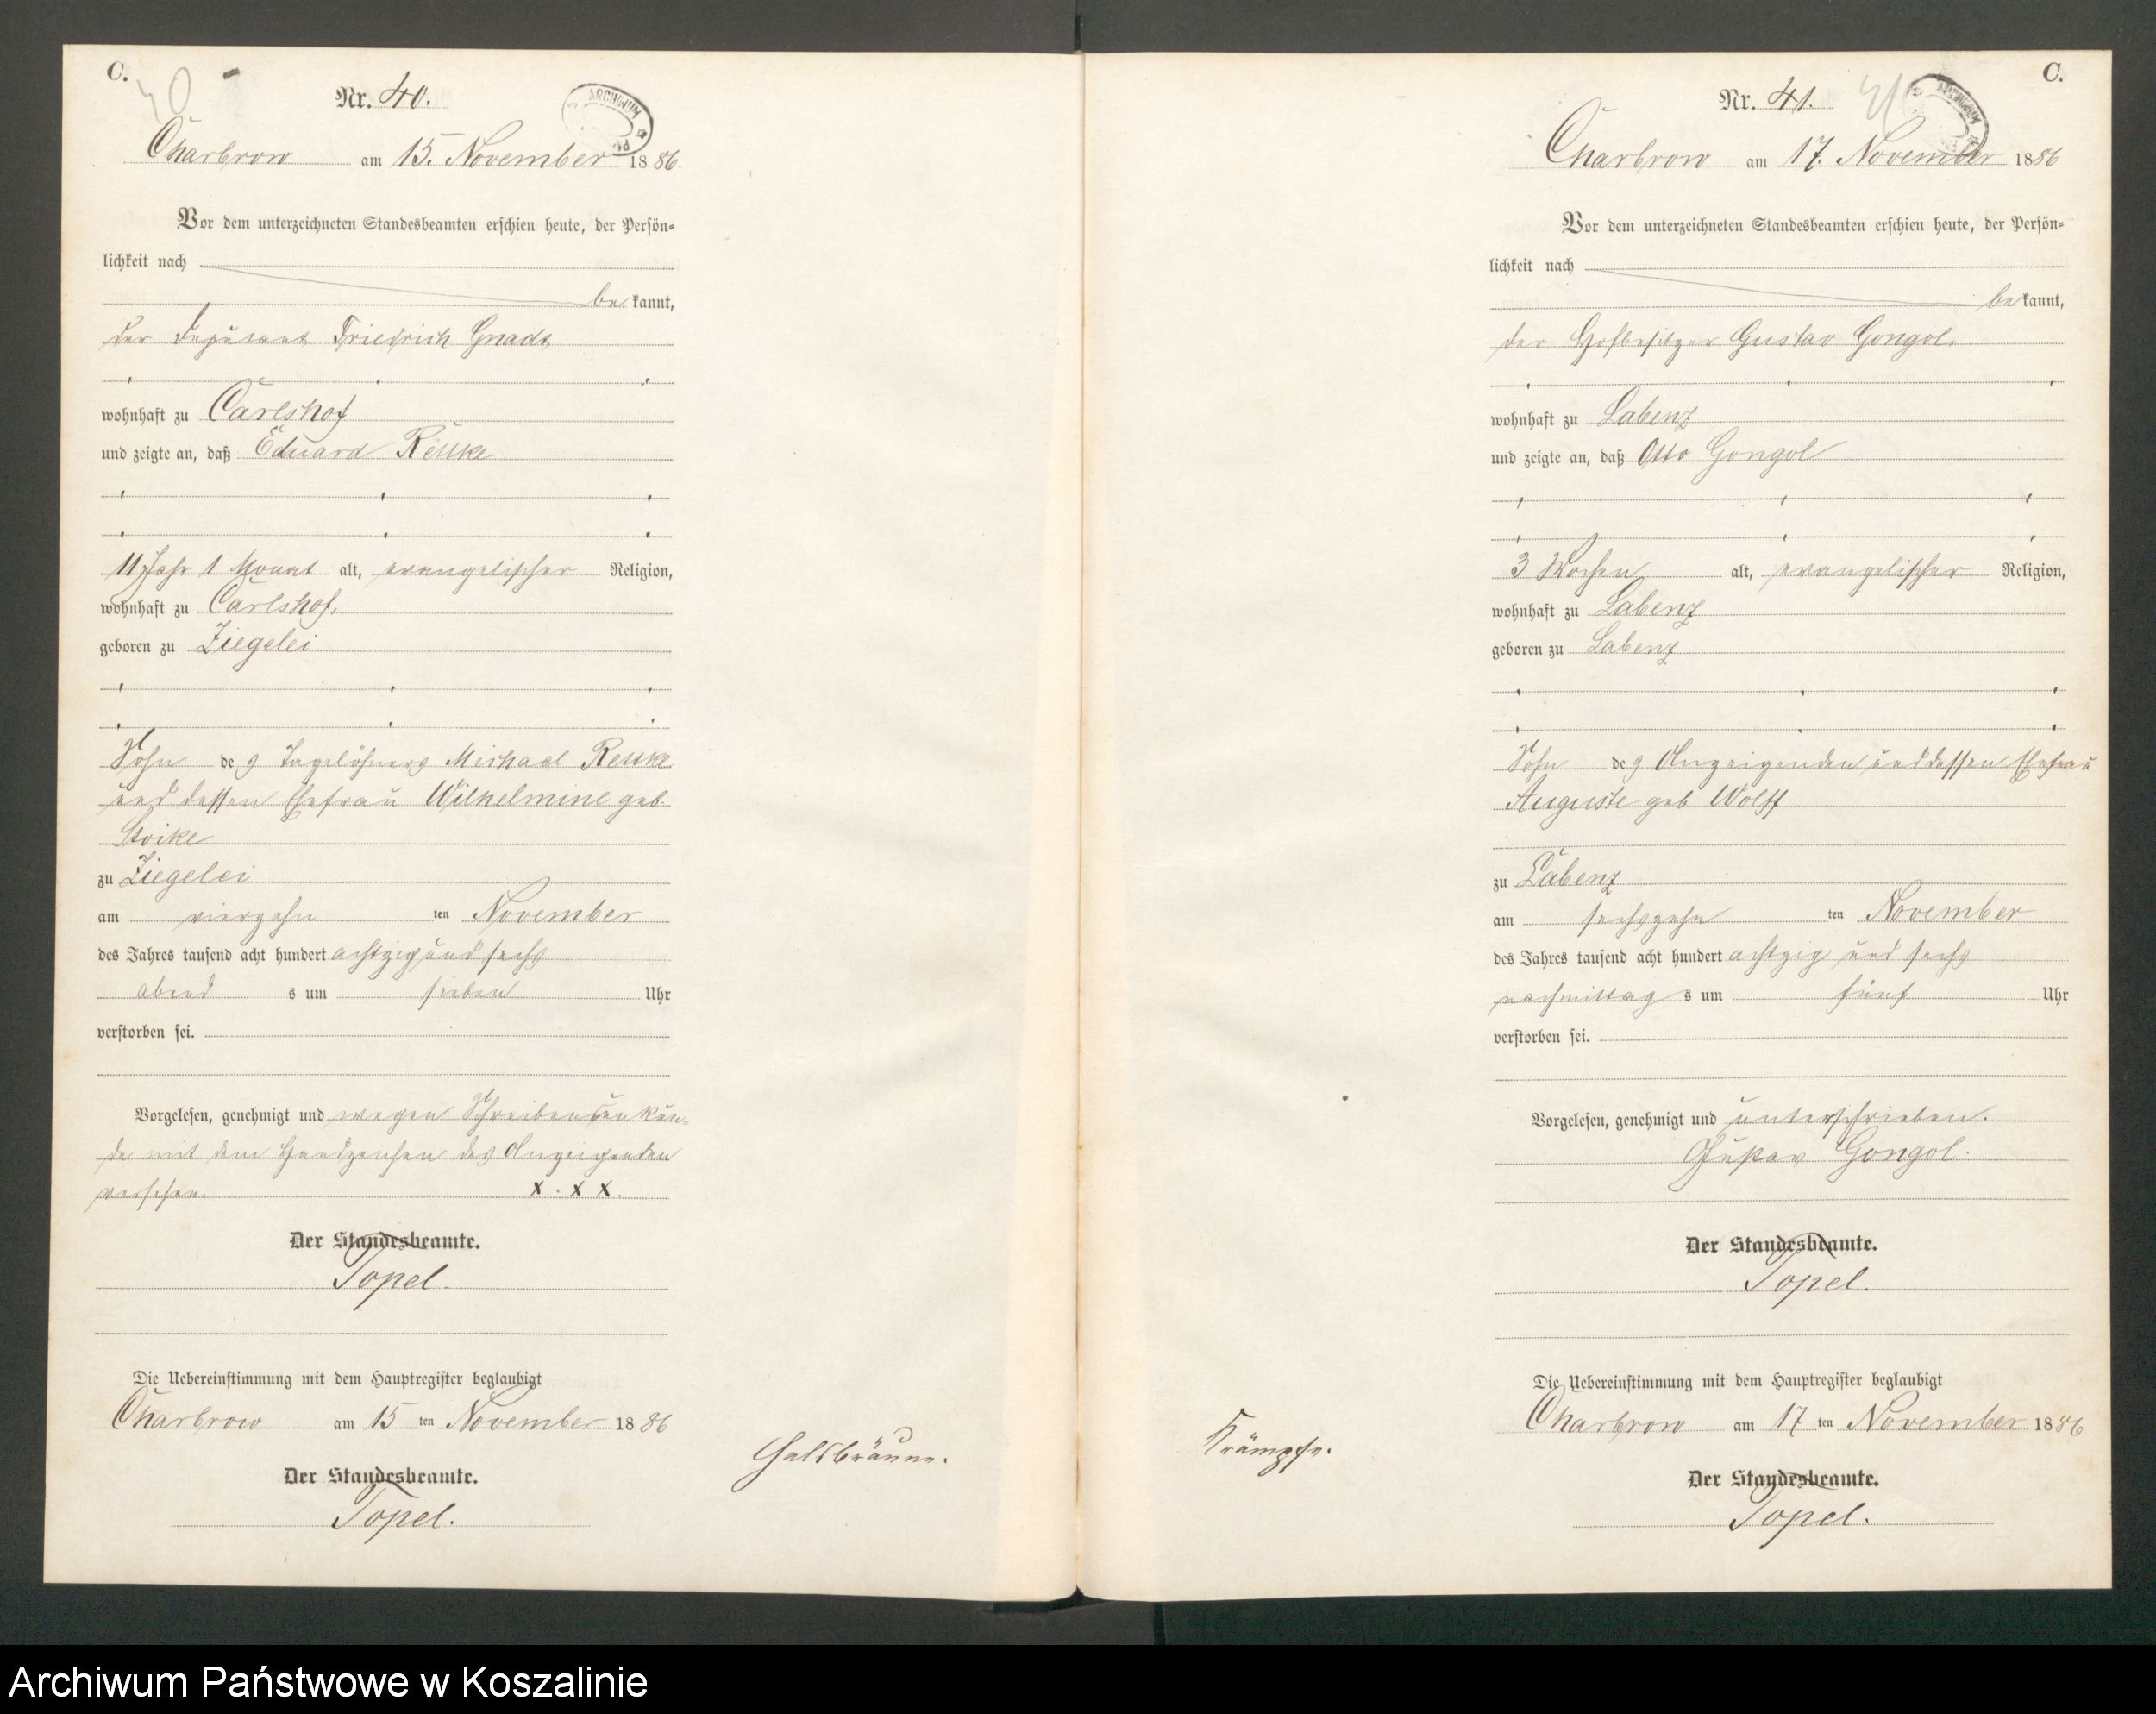 C.
40
Nr. 40.
ARCHIWUM
Charbrow am 15. November 1886.
Vor dem unterzeichneten Standesbeamten erschien heute, der Persön-
lichkeit nach
be kannt,
der Deputant Friedrich Gnadt
wohnhaft zu Carlshof
und zeigte an, daß Eduard Reuke
11 Jahr 1 Monat alt, evangelischer Religion,
wohnhaft zu Carlshof,
geboren zu Ziegelei
Sohn des Tagelöhners Michael Reuke
und dessen Ehefrau Wilhelmine geb.
Stoike
zu Ziegelei
am vierzehn ten November
des Jahres tausend acht hundert achtzig und sechs
abend s um sieben Uhr
verstorben sei.
Vorgelesen, genehmigt und wegen Schreibensunkun-
de mit dem Handzeichen des Anzeigenden
versehen. X . X X.
Der Standesbeamte.
Topel.
Die Uebereinstimmung mit dem Hauptregister beglaubigt
Charbrow am 15 ten November 1886
Der Standesbeamte.
Topel.
Halsbräune.
C.
Nr. 41.
41
ARCHIWUM
Charbrow am 17. November 1886
Vor dem unterzeichneten Standesbeamten erschien heute, der Persön-
lichkeit nach
be kannt,
der Hofbesitzer Gustav Gongol,
wohnhaft zu Labenz
und zeigte an, daß Otto Gongol
3 Wochen alt, evangelischer Religion,
wohnhaft zu Labenz
geboren zu Labenz
Sohn des Anzeigenden und dessen Ehefrau
Auguste geb Wolff
zu Labenz
am sechszehn ten November
des Jahres tausend acht hundert achtzig und sechs
nachmittag s um fünf Uhr
verstorben sei.
Vorgelesen, genehmigt und unterschrieben.
Gustav Gongol.
Der Standesbeamte.
Topel.
Die Uebereinstimmung mit dem Hauptregister beglaubigt
Charbrow am 17 ten November 1886
Der Standesbeamte.
Topel.
Krämpfe.
Archiwum Państwowe w Koszalinie